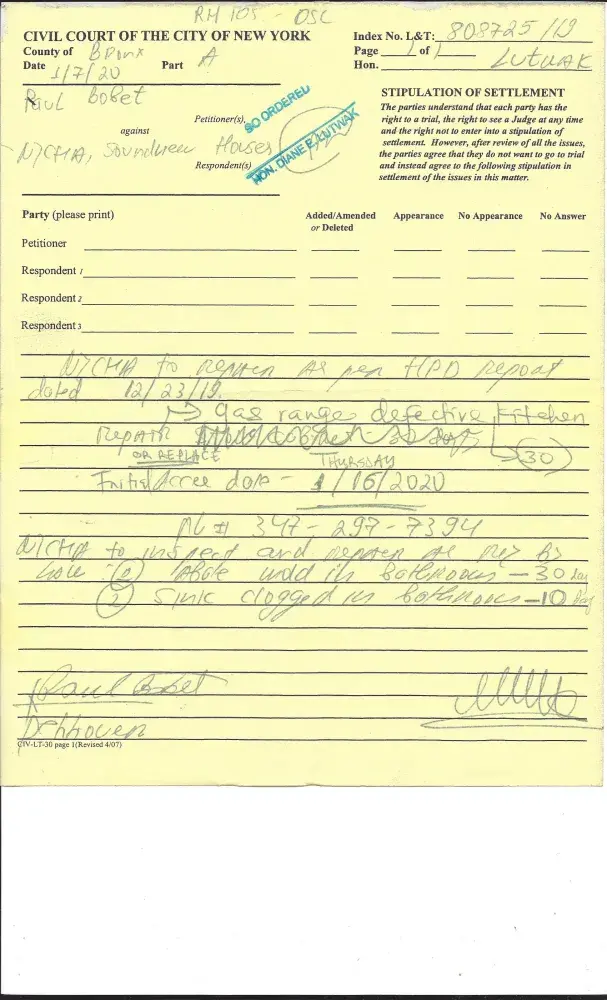 RM 105 - OSC
CIVIL COURT OF THE CITY OF NEW YORK
County of Bronx
Date 1/7/20 Part A
Index No. L&T: 808725/19
Page 1 of 1
Hon. LUTWAK
Paul Bobet
Petitioner(s),
against
NYCHA, Soundview Houses
Respondent(s)
SO ORDERED
HON. DIANE E. LUTWAK
STIPULATION OF SETTLEMENT
The parties understand that each party has the
right to a trial, the right to see a Judge at any time
and the right not to enter into a stipulation of
settlement. However, after review of all the issues,
the parties agree that they do not want to go to trial
and instead agree to the following stipulation in
settlement of the issues in this matter.
Party (please print) Added/Amended or Deleted Appearance No Appearance No Answer
Petitioner
Respondent 1
Respondent 2
Respondent 3
NYCHA to repair as per HPD report
dated 12/23/19.
→ gas range defective, kitchen
Repair (30)
OR REPLACE THURSDAY
Initial Access date - 1/16/2020
Ph # 347-297-7394
NYCHA to inspect and repair as per
law (1) Abate mold in bathroom - 30 day
(2) Sink clogged in bathroom - 10 day
Paul Bobet
CIV-LT-30 page 1(Revised 4/07)